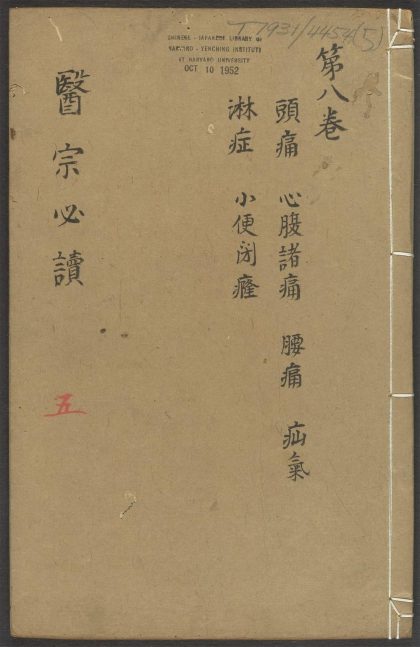 T7931/4454(5)
CHINESE - JAPANESE LIBRARY OF
HARVARD - YENCHING INSTITUTE
AT HARVARD UNIVERSITY
OCT 10 1952
第八卷
頭痛 心腹諸痛 腰痛 疝氣
淋症 小便闭癃
醫宗必讀
五